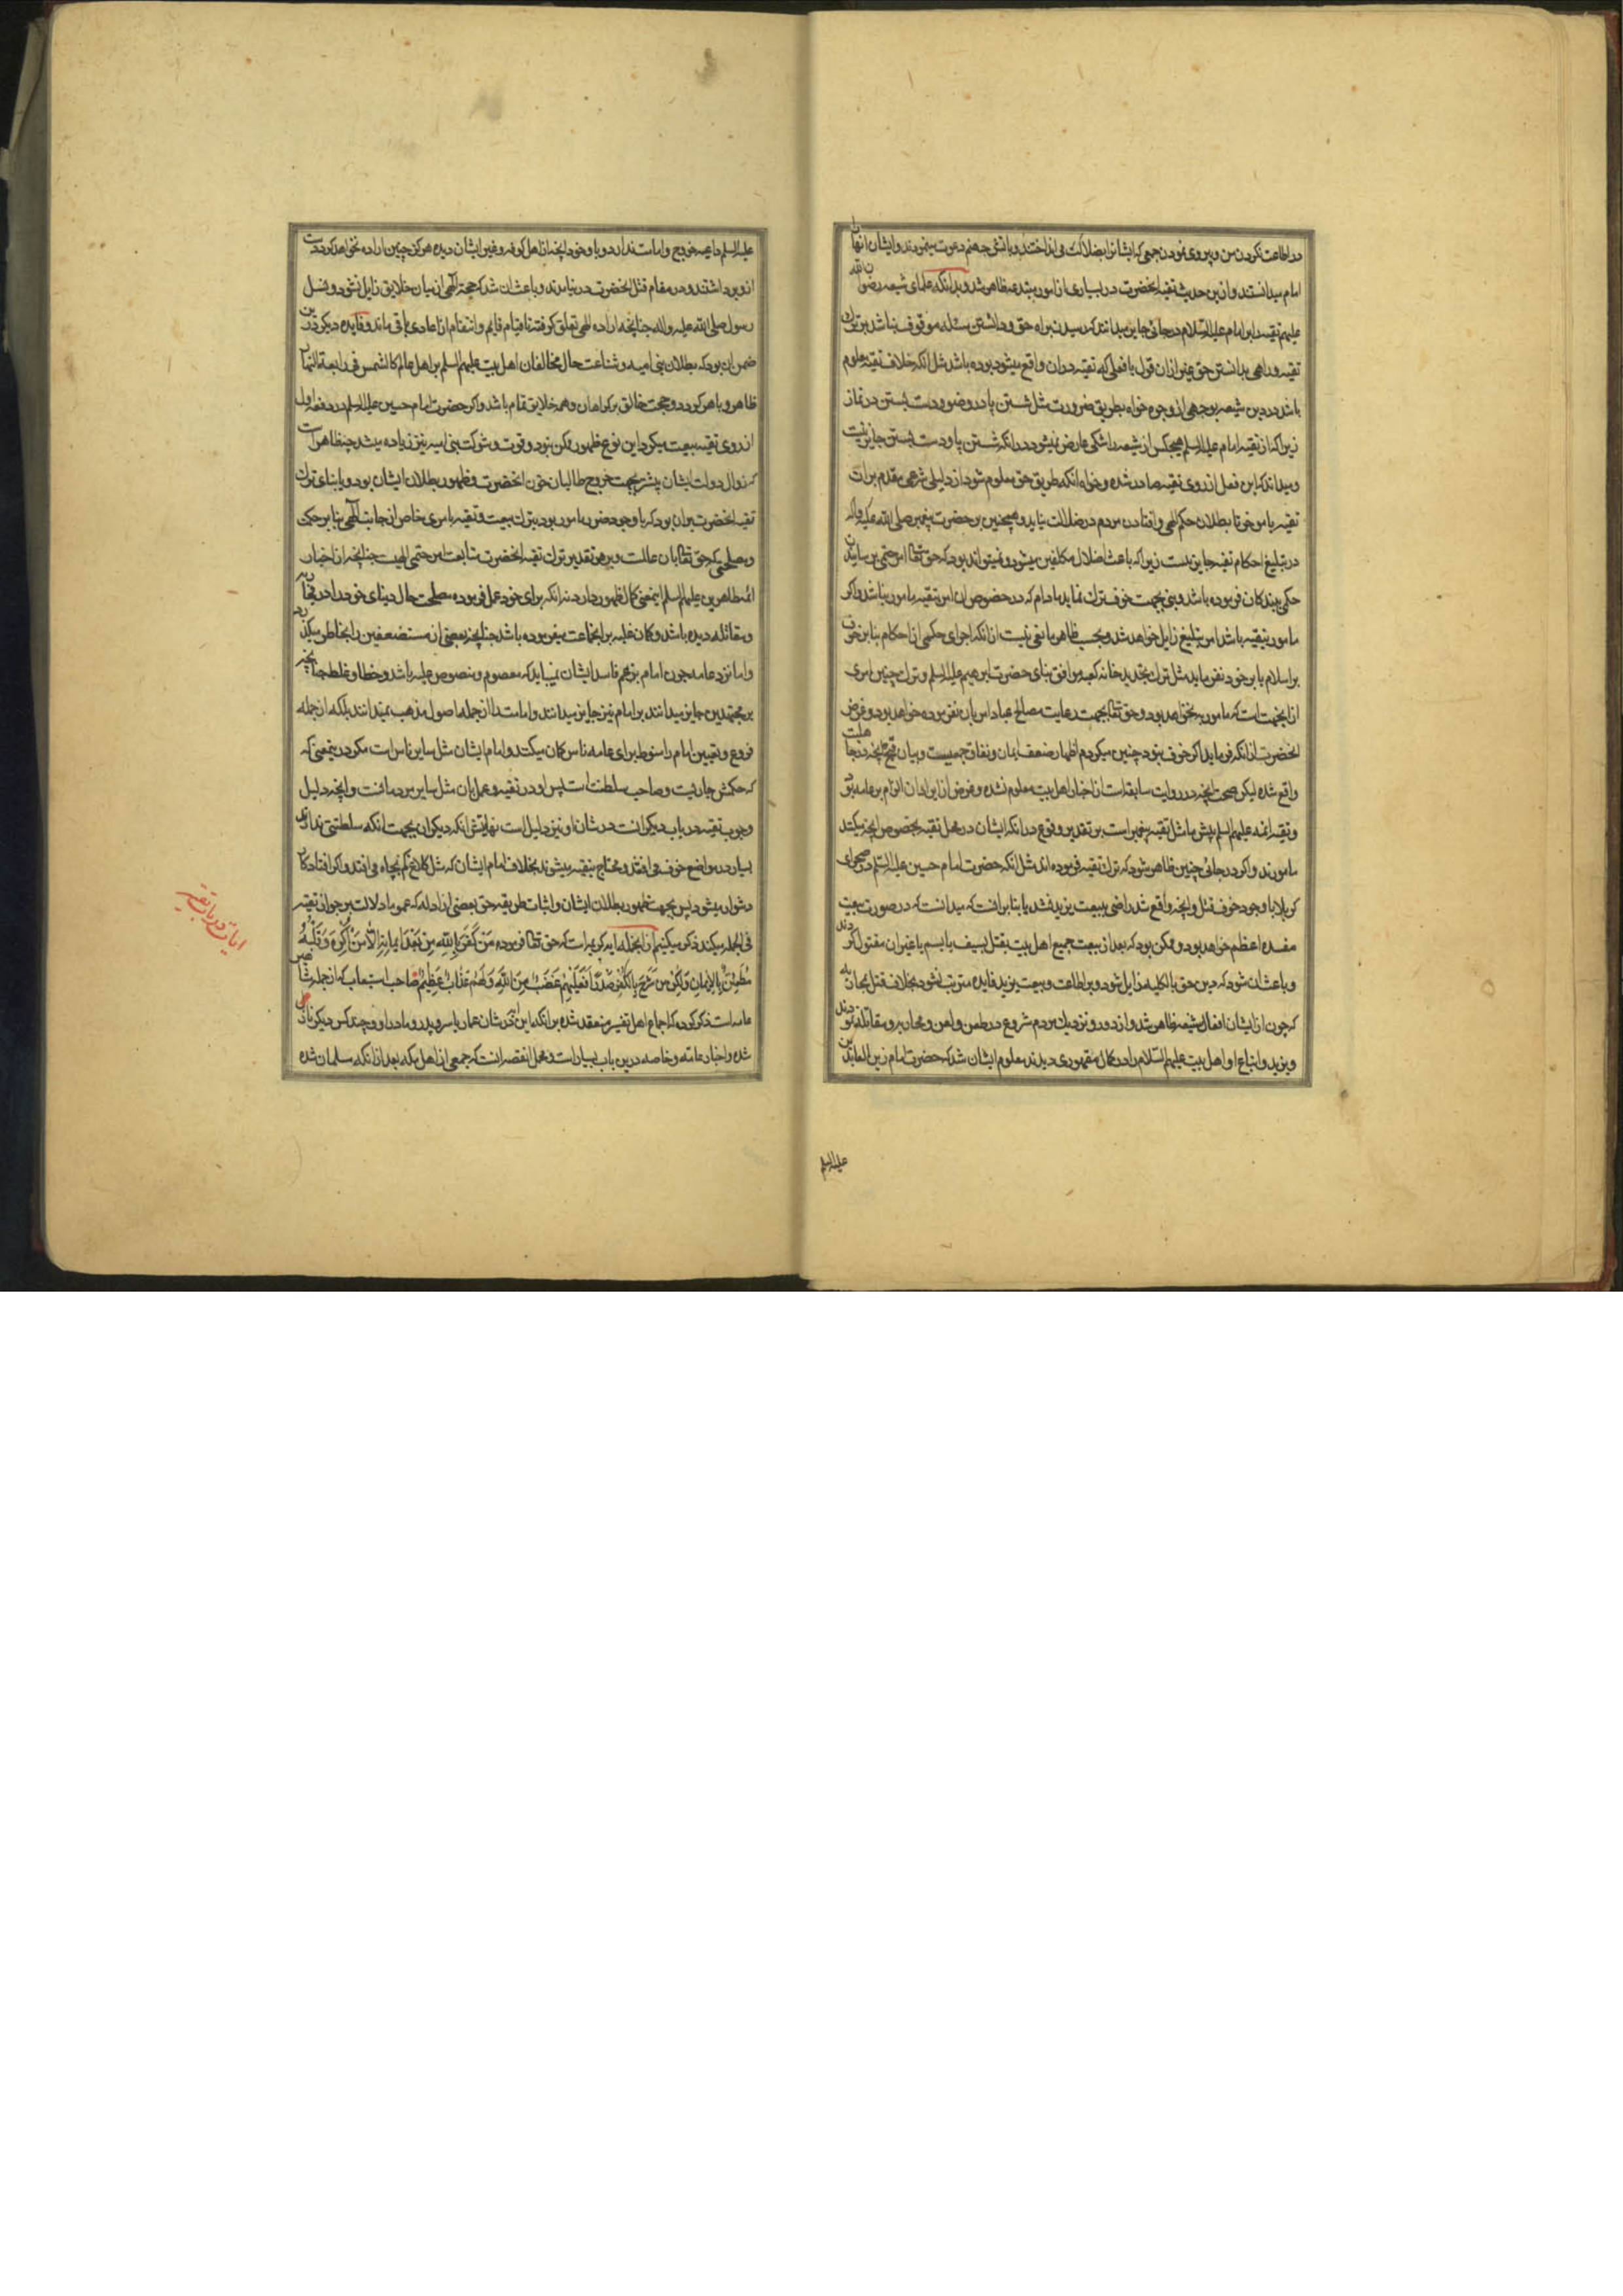 در اطاعت نکردن من و پیروی نمودن جمعی که ایشانرا بضلالت می انداختند و باتش جهنم دعوت مینمودند و ایشان انهارا
امام میدانستند و ازین حدیث تقیه انحضرت در بسیاری از امور مبتدعه ظاهر شد و بدانکه علمای شیعه رضوان الله
علیهم تقیه را بر امام علیه السّلام در جائی جایز میدانند که رسیدن براه حق و دانستن مسئله موقوف نباشد بر ترک
تقیه و راهی بدانستن حق غیر از ان قول یا فعلی که تقیه در ان واقع میشود بوده باشد مثل انکه خلاف تقیه معلوم
باشد در دین شیعه بوجهی از وجوه خواه بطریق ضرورت مثل شستن پا در وضو و دست بستن در نماز
زیرا که از تقیه امام علیه السلم هیچکس از شیعه را شکی عارض نمیشود در انکه شستن پا و دست بستن جایز نیست
و میداند که این فعل از روی تقیه صادر شده و خواه انکه طریق حق معلوم شود از دلیلی شرعی مقدم بر ان
تقیه یا موخر تا بطلان حکم الهی و افتادن مردم در ضلالت نیاید و همچنین بر حضرت پیغمبر صلی الله علیه و اله
در تبلیغ احکام تقیه جایز نیست زیرا که باعث اضلال مکلفین میشود و نمیتواند بود که حق تعالی امر حتمی برسانیدن
حکمی ببندکان فرموده باشد و نبی بجهت خوف ترک نماید مادام که در خصوص ان امر بتقیه مامور نباشد و اکر
مامور بتقیه باشد امر بتبلیغ زایل خواهد شد و بحسب ظاهر مانعی نیست از انکه اجرای حکمی از احکام بنا بر خوف
بر اسلام یا بر خود نفرماید مثل ترک تجدید خانه کعبه موافق بنای حضرت ابرهیم علیه السلم و ترک چنین امری
از اینجهت است که مامور به نخواهد بود و حق تعالی بجهت رعایت مصالح عباد امر بان نفرموده خواهد بود و غرض
انحضرت از انکه فرماید اکر خوف نبود چنین میکردم اظهار ضعف ایمان و نفاق جمعیست و بیان قبح انچه در جاهلیت
واقع شده لیکن صحت انچه در روایت سابقه است از اخبار اهل بیت معلوم نشده و غرض از ایراد ان الزام بر عامه بود
و تقیه ائمه علیهم السلم پیش ما مثل تقیه پیغمبر است بر تقدیر وقوع در انکه ایشان در محل تقیه بخصوص انچه میکنند
مامورند و اکر در جائی چنین ظاهر شود که ترک تقیه فرموده اند مثل انکه حضرت امام حسین علیه السّلم در صحرای
کربلا با وجود خوف قتل و انچه واقع شد راضی ببیعت یزید نشد یا بنا بر انست که میدانست که در صورت بیعت
مفسده اعظم خواهد بود و ممکن بود که بعد از بیعت جمیع اهل بیت بقتل بسیف یا بسم یا غیر ان مقتول کردند
و باعث ان شود که دین حق بالکلیه زایل شود و بر اطاعت و بیعت یزید فایده مترتب نشود بخلاف قتل بمحاربه
که چون از ایشان افعال شنیعه ظاهر شد و از دور و نزدیک مردم شروع در طعن و لعن و محاربه و مقاتله نمودند
و یزید و اتباع او اهل بیت علیهم السّلام را در کمال مقهوری دیدند معلوم ایشان شد که حضرت امام زین العابدین
علیه السلم
علیه السلم داعیه خروج و امامت ندارد و با وجود انچه از اهل کوفه و غیر ایشان دیده هرکز چنین اراده نخواهد کرد دست
از و برداشتند و در مقام قتل انحضرت در نیامدند و باعث ان شد که حجة الهی از میان خلایق زایل نشود و نسل
رسول صلی الله علیه و اله چنانچه اراده الهی تعلق کرفته تا قیام قایم و انتقام از اعادی باقی ماند و فایده دیکر درین
ضمن ان بود که بطلان بنی امیه و شناعت حال مخالفان اهل بیت علیهم السلم بر اهل عالم کالشمس فی رابعة النهار
ظاهر و باهر کردد و حجت خالق بر کمراهان و همه خلایق تمام باشد و اکر حضرت امام حسین علیه السلم در دفعه اول
از روی تقیه بیعت میکرد این نوع ظهور ممکن نبود و قوت و شوکت بنی امیه نیز زیاده میشد چه ظاهر است
که زوال دولت ایشان بیشتر بجهت خروج طالبان خون انحضرت و ظهور بطلان ایشان بود و یا بنای ترک
تقیه انحضرت بر ان بود که با وجود ضرر مامور بود بترک بیعت و تقیه بامری خاص از جانب الهی بنا بر حکمتی
و مصلحتی که حق تعالی بان عالمست و بر هر تقدیر ترک تقیه انحضرت متابعت امر حتمی الهیست چنانچه از اخبار
ائمه طاهرین علیهم السلم اینمعنی کمال ظهور دارد نه انکه برای خود عمل فرموده مصلحت حال دنیای خود را در محاربه
و مقاتله دیده باشد و کمان غلبه بر انجماعت مینموده باشد چنانچه بعضی از مستضعفین را بخاطر میکذرد
و اما نزد عامه چون امام بزعم فاسد ایشان نمیباید که معصوم و منصوص علیه باشد و خطا و غلط چنانچه
بر مجتهدین جایز میدانند بر امام نیز جایز میدانند و امامت را از جمله اصول مذهب نمیدانند بلکه از جمله
فروع و تعیین امام را منوط برای عامه ناس کمان میکنند و امام ایشان مثل سایر ناس است مکر در اینمعنی که
که حکمش جاریست و صاحب سلطنت است پس او در تقیه و عمل بان مثل سایر مردمانست و انچه دلیل
وجوب تقیه در باب دیکرانست در شان او نیز دلیل است نهایتش انکه دیکران بجهت انکه سلطنتی ندارند
بسیار در مواضع خوف می افتند و محتاج بتقیه میشوند بخلاف امام ایشان که مثل کلاغ کم بچاه می افتد و اکر افتاد کار
دشوار میشود پس بجهت ظهور بطلان ایشان و اثبات طریقه حق بعضی از ادله که عموما دلالت بر جواز تقیه
فی الجمله میکند ذکر میکنیم از انجمله ایه کریمه است که حق تعالی فرموده مَنْ كَفَرَ بِاللّهِ مِنْ بَعْدِ اِيمانِهِ اِلّا مَنْ اُكْرِهَ وَ قَلْبُهُ
مُطْمَئِنٌّ بِالْاِيمانِ وَلكِنْ مَنْ شَرَحَ بِالْكُفْرِ صَدْرًا فَعَلَيْهِمْ غَضَبٌ مِنَ اللّهِ وَ لَهُمْ عَذابٌ عَظِيمٌ صاحب استیعاب که از جمله مشاهیر
عامه است ذکر کرده که اجماع اهل تفسیر منعقد شده بر انکه این در شان عمار یاسر و پدر و مادر او و چند کس دیکر نازل
شده و اخبار عامه و خاصه درین باب بسیار است و مجمل القصه انست که جمعی از اهل مکه بعد از انکه مسلمان شده